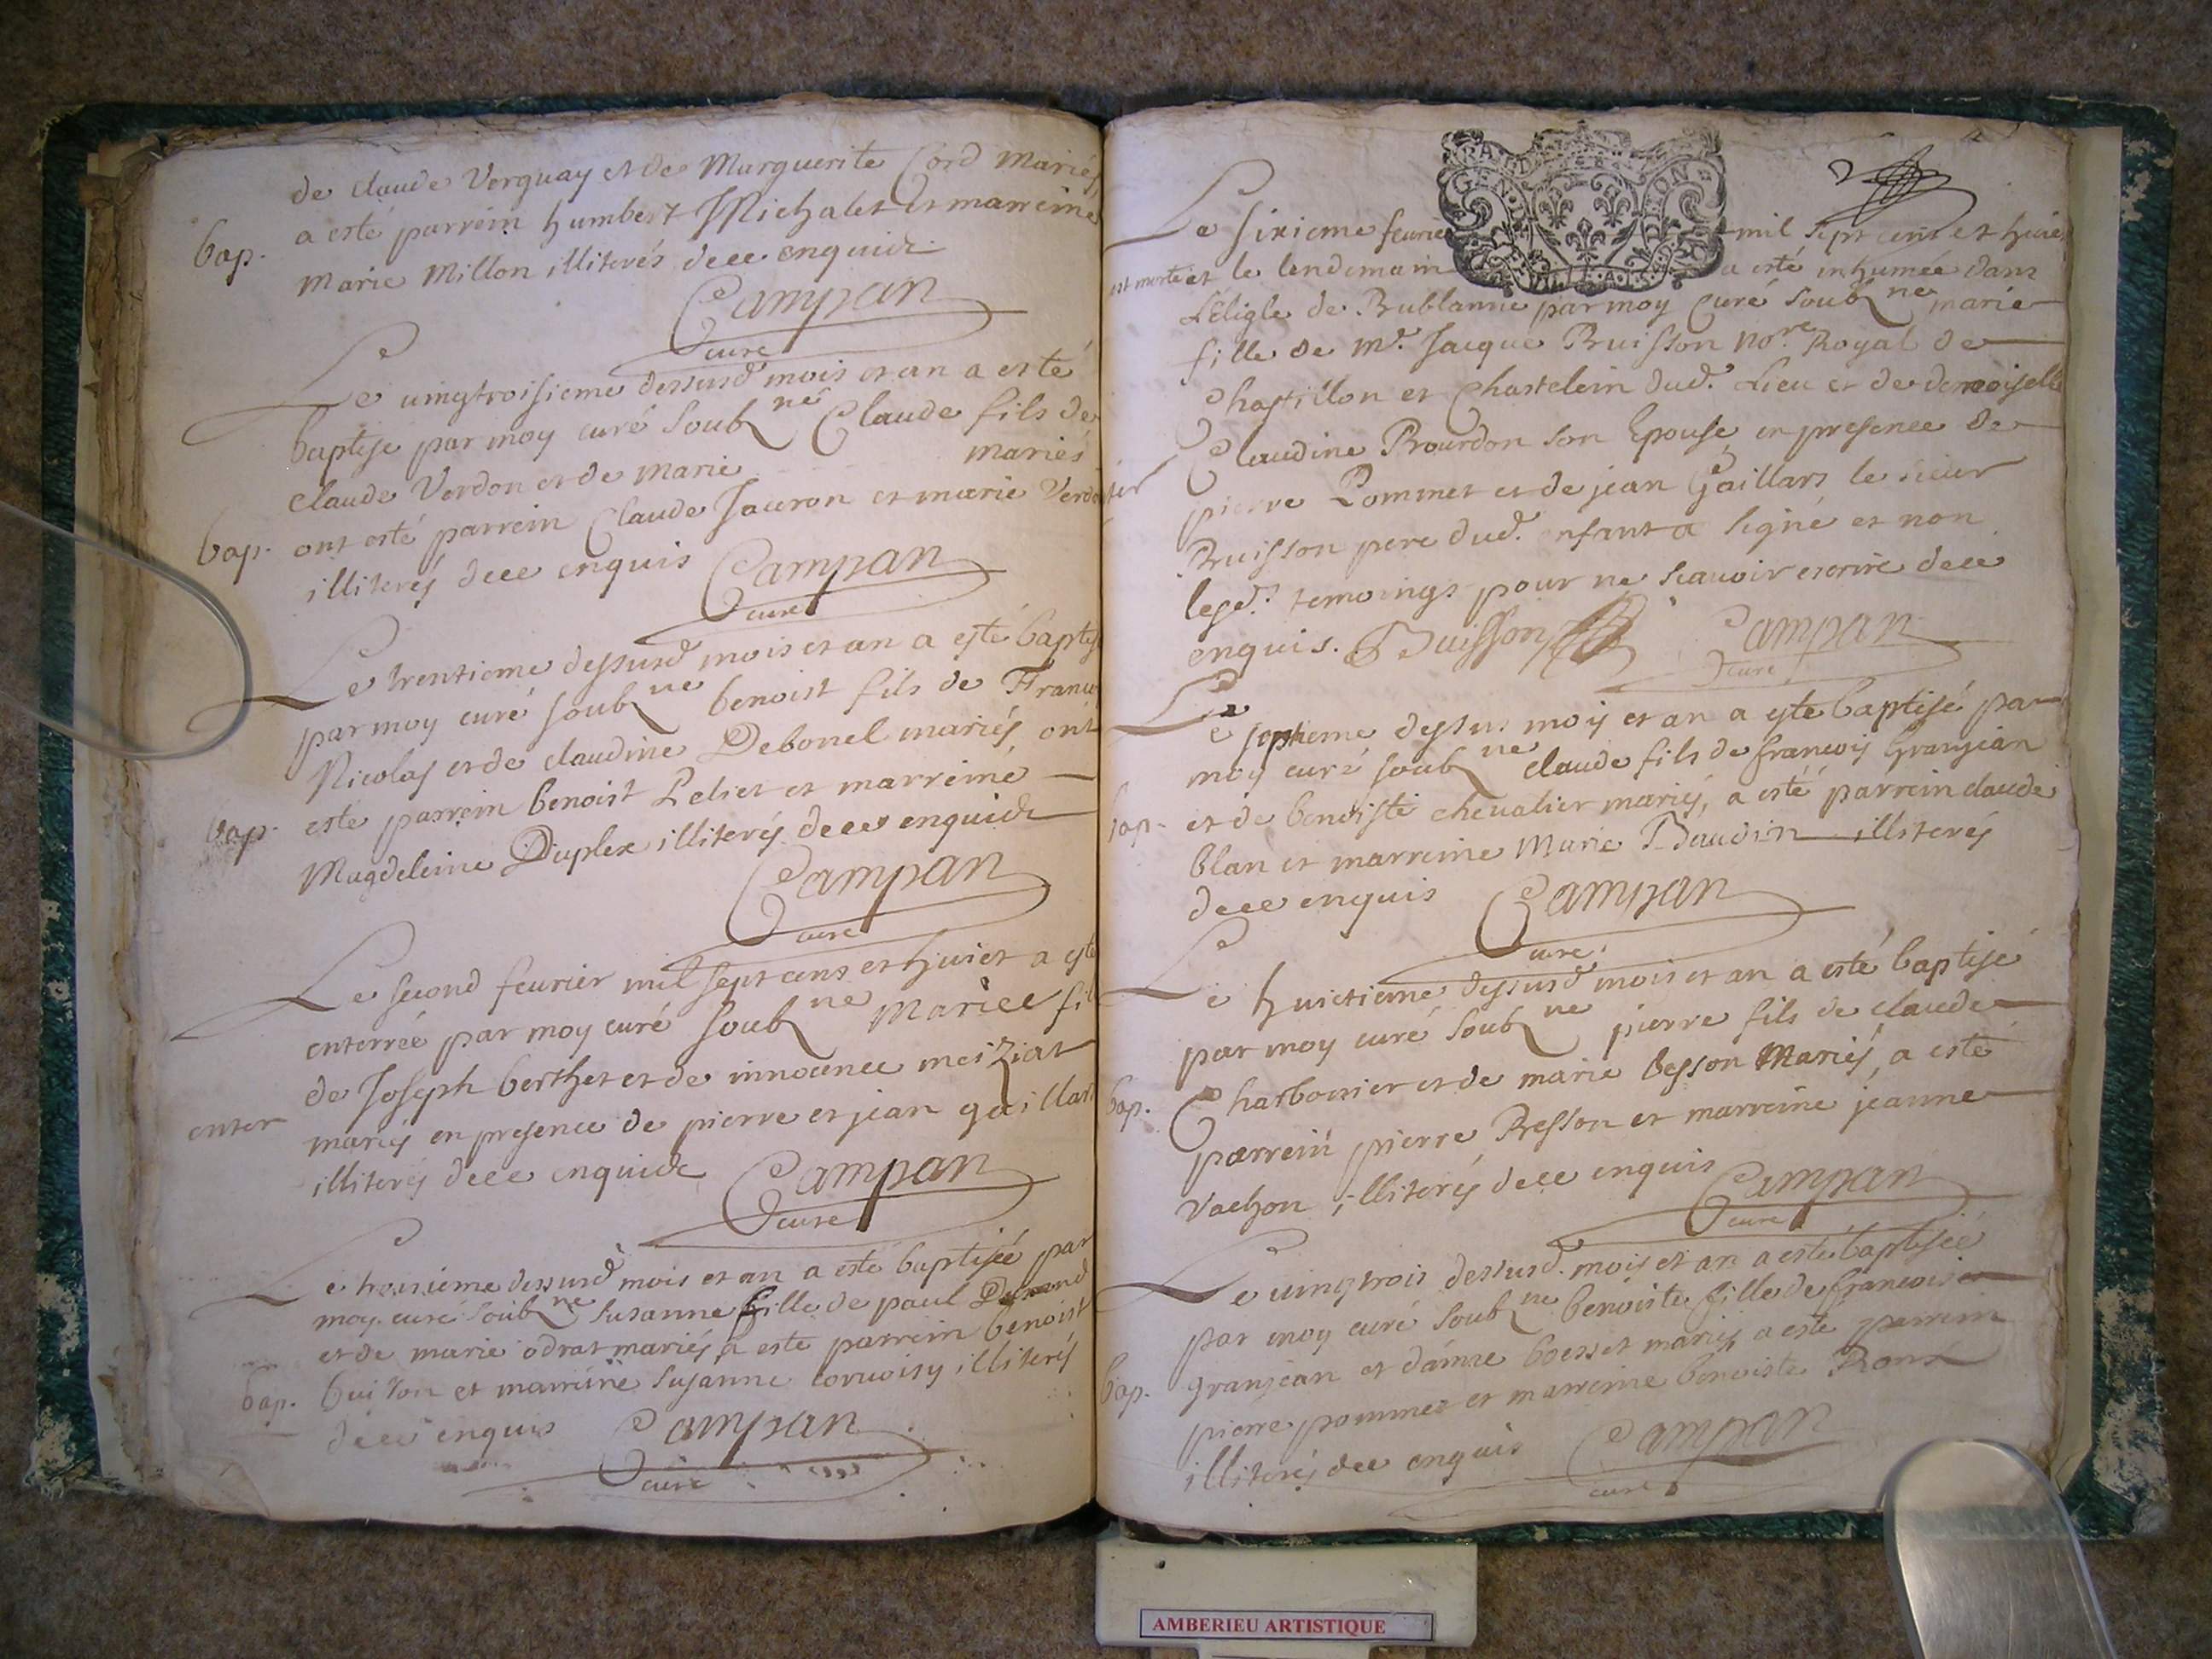 de claude Verguay et de Marguerite Cord Mariés
a esté parrein humbert Michalet et marreine
bap.
Marie Millon illiterés dece enquict
Campan
curé
Le uingtroisieme dessusd mois et an a esté
baptise par moy curé soubne Claude fils de
Claude Verdon et de Marie mariés
bap. ont esté parrein Claude Jacron et marie
illiterés dece enquis Campan
curé
Le trentieme dessusd mois et an a esté
par moy curé soubne benoist fils de
Nicolas et de claudine Debonel mariés ont
bap. esté parrein benoist Peliet et marreine
Magdeleine Duplex illiterés dece enquict
Campan
curé
Le second feurier mil sept cens et huict a
enterrée par moy curé soubne Mariee
de Joseph berthet et de innocence meiziat
enter mariés en presence de pierre et jean
illiterés dece enquict Campan
curé
Le troisieme dessusd mois et an a esté baptisée par
moy curé soubne Susanne fille de paul
et de marie odrat mariés a esté parrein benoist
bap. buison et marreine Susanne illiterés
dece enquis Campan
curé
Le sixieme feurier mil sept cens et huict
est morte et le lendemain a esté inhumée dans
L'éligle de Bublanne par moy Curé soubne marie
fille de Mr. Jacque Bruisson nore. Royal de
Chastillon et Chastelein dud. Lieu et de demoiselle
Claudine Bourdon son Epouse en presence de
pierre Pommet et de jean Gaillard le sieur
Bruisson pere dud. enfant a signé et non
lesd. temoings pour ne scauoir escrire dece
enquis. Buisson Campan
curé
Le septieme dessus mois et an a esté baptisé par
moy curé soubne claude fils de francois Granjean
bap. et de benoiste chevalier mariés, a esté parrein claude
blan et marreine Marie Baudin illiterés
dece enquis Campan
curé
Le huictieme dessusd mois et an a esté baptisé
par moy curé soubne pierre fils de claude
bap. Charbonier et de marie besson Mariés, a esté
parrein pierre Besson et marreine jeanne
Vachon illiterés dece enquis Campan
curé
Le uingtrois dessusd. mois et an a esté baptisée
par moy curé soubne benoiste fille de francois
granjean et d'ánne boesset mariés a esté parrein
bap. pierre pommet et marreine benoiste Roux
illiterés dece enquis Campan
curé
AMBERIEU ARTISTIQUE